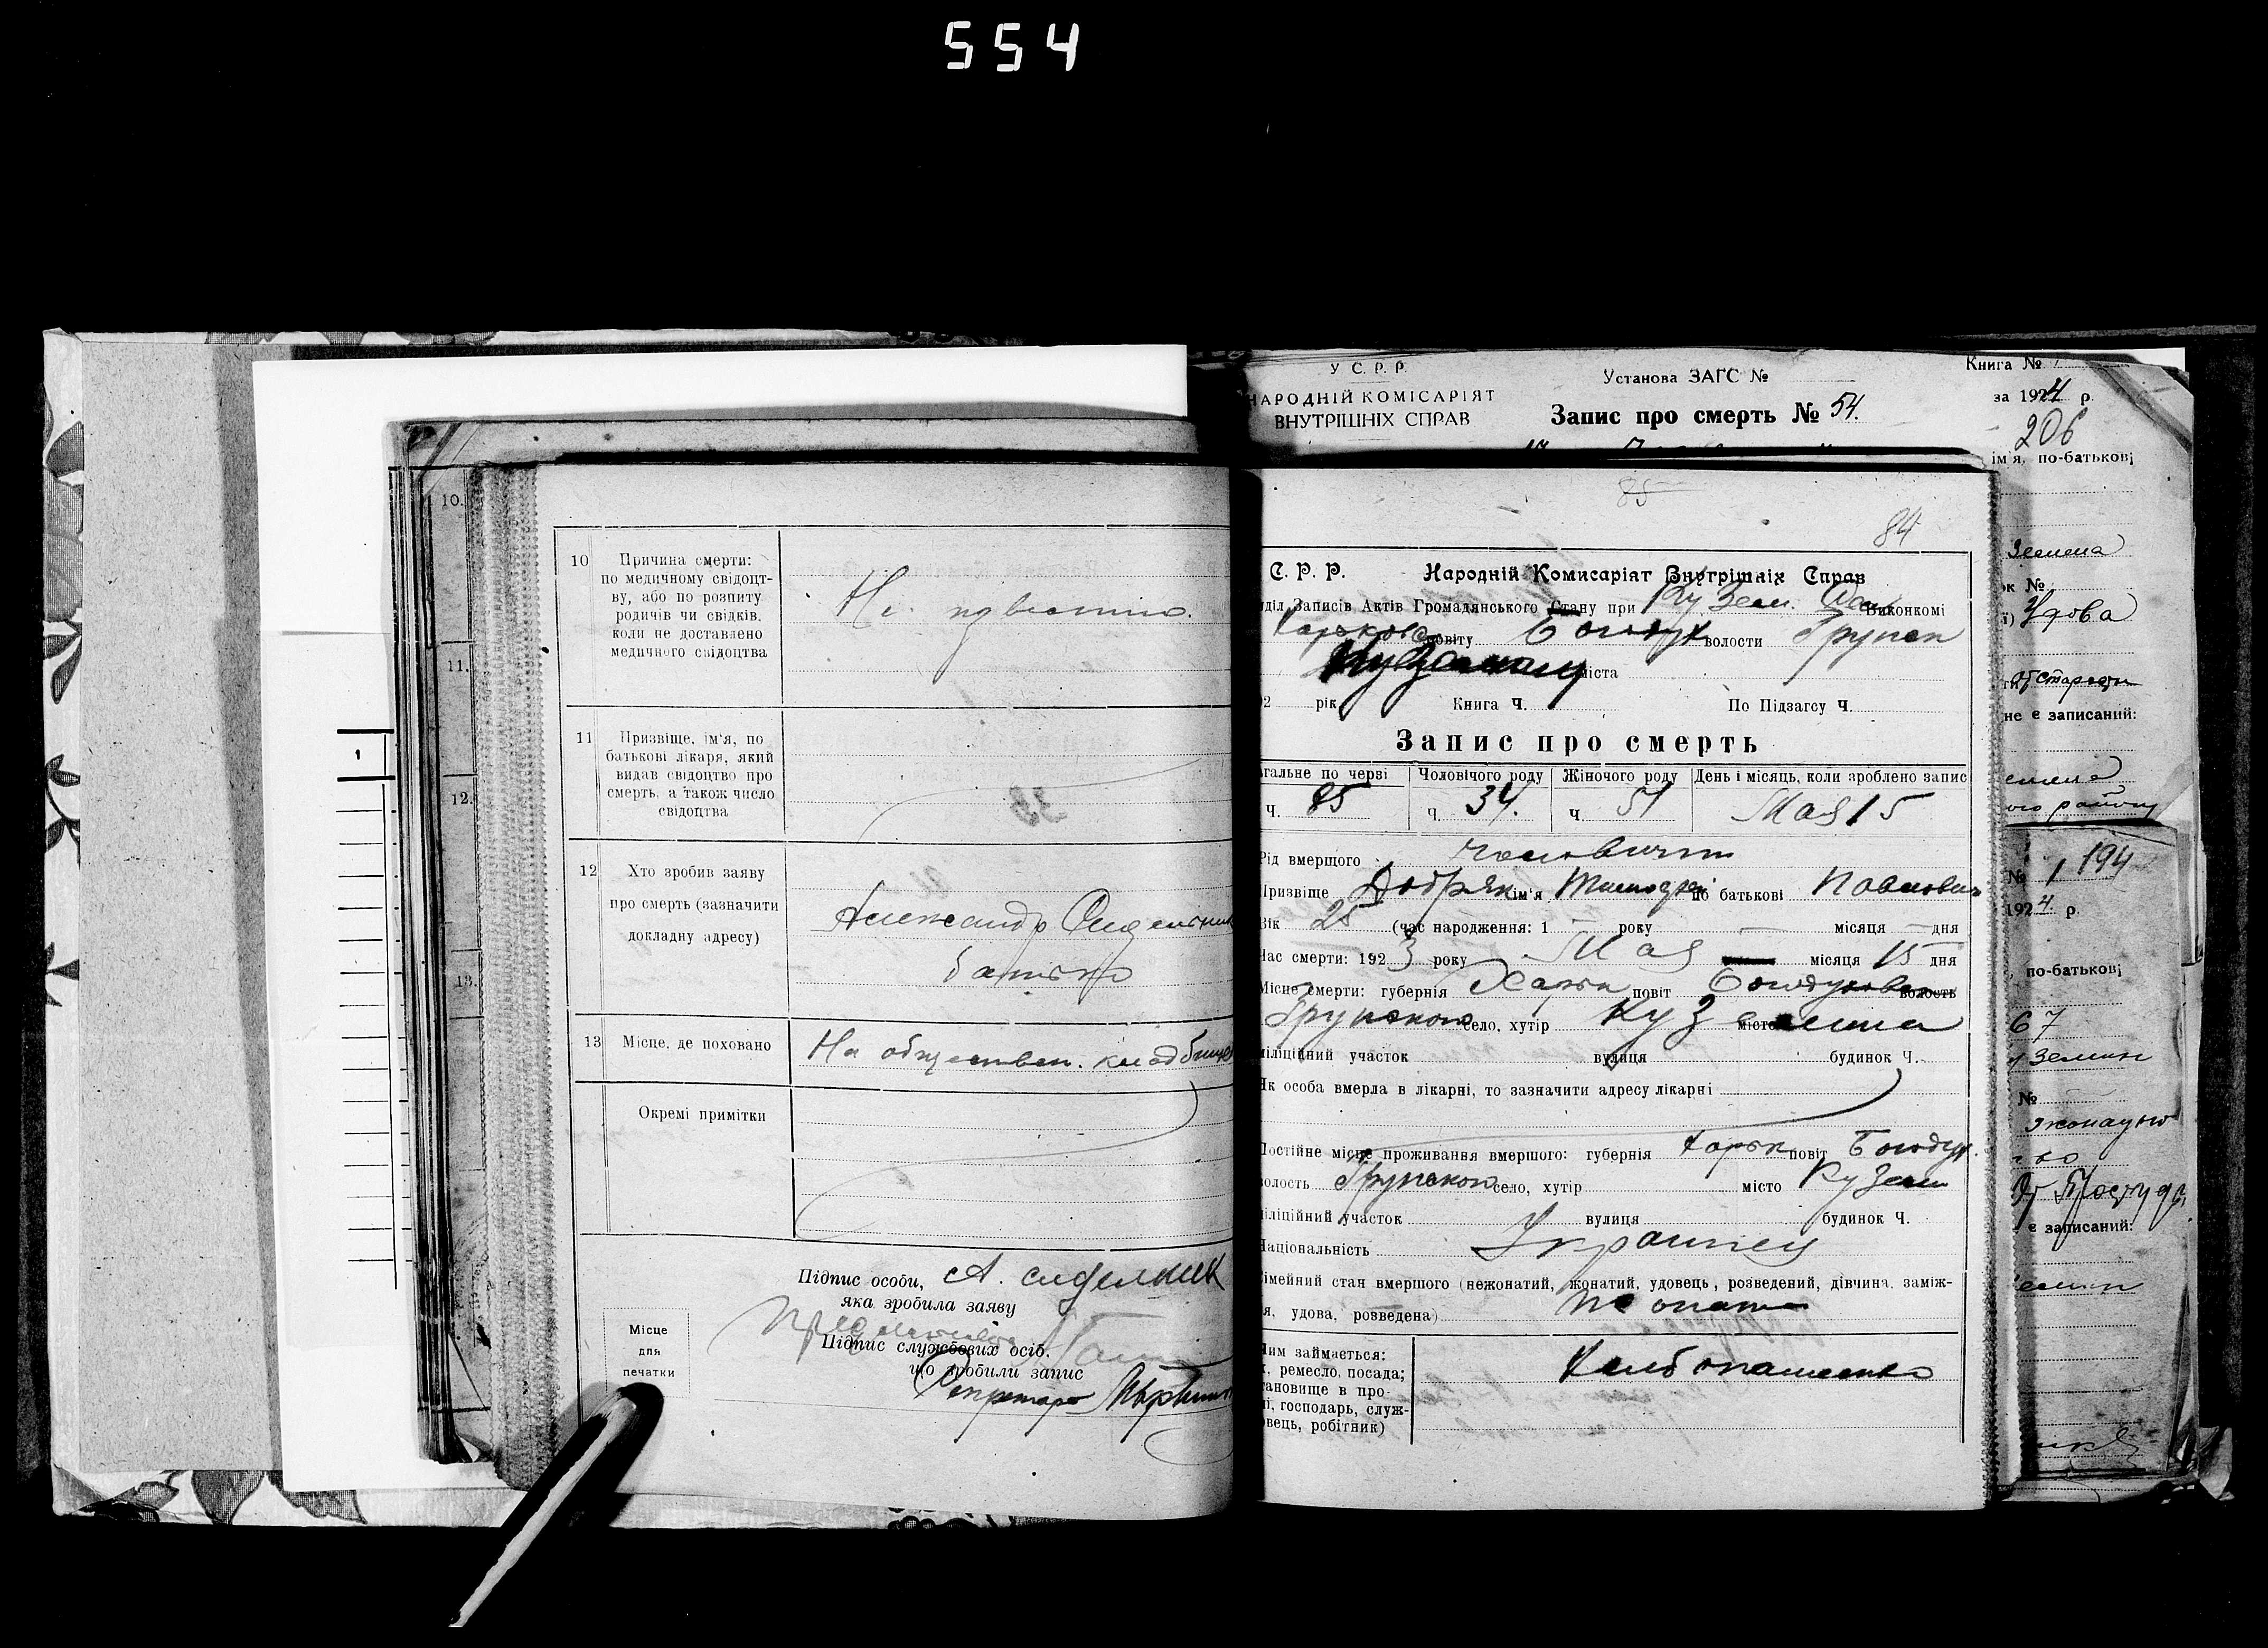 554
10.
11.
12.
13.
1
10 Причина смерти:
по медичному свідоцт-
ву, або по розпиту
родичів чи свідків,
коли не доставлено
медичного свідоцтва
Не известно.
11 Призвіще, ім'я, по
батькові лікаря, який
видав свідоцтво про
смерть, а також число
свідоцтва
12 Хто зробив заяву
про смерть (зазначити
докладну адресу)
Александр
батько
13 Місце, де поховано
На обществен. кладбище
Окремі примітки
Підпис особи,
яка зробила заяву
А. сиделник
Підпис службових осіб,
що зробили запис
Секретарь
Місце
для
печатки
У С. Р. Р.
НАРОДНІЙ КОМІСАРІЯТ
ВНУТРІШНІХ СПРАВ
Установа ЗАГС №
Запис про смерть № 54.
Книга №
за 1924 р.
206
ім'я, по-батькові
85
84
С. Р. Р. Народній Комисаріат Внутрішніх Справ
діл Записів Актів Громадянського Стану при Кузем. Виконкомі
Харьков повіту Богодух волости Грунск
міста
2 рік Книга Ч. По Підзагсу Ч.
Запис про смерть
гальне по черзі Чоловічого роду Жіночого роду День і місяць, коли зроблено запис
Ч. 85 Ч. 34. Ч. 51 Мая 15
Рід вмерщого
Призвіще Добряк ім'я Тимофей по батькові Павлович
Вік 25 (час народження: 1 року — місяця — дня
Час смерти: 1923 року Мая місяця 15 дня
Місце смерти: губернія Харьк повіт Богодуховск волость
Грунской село, хутір місто Куземина
міліційний участок вулиця будинок Ч.
Як особа вмерла в лікарні, то зазначити адресу лікарні
Постійне місце проживання вмершого: губернія Харьк повіт Богодух.
волость Грунской село, хутір місто Кузем
міліційний участок вулиця будинок Ч.
Національність Украинец
імейний стан вмершого (нежонатий, жонатий, удовець, розведений, дівчина, заміж-
я, удова, розведена)
Чим займається:
, ремесло, посада;
тановище в про-
і, господарь, служ-
вець, робітник)
Хлебопашество
Земена
ок №
Удова
не є записаний:
ого району
№ 1 194
1924. р.
по-батькові
67
№
є записаний: